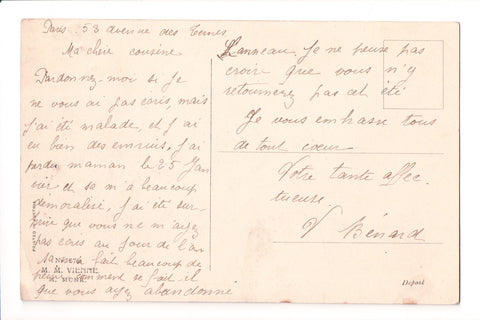 Paris 58 avenue des Ternes
Ma chère cousine
Pardonnez-moi si je
ne vous ai pas écris, mais
j'ai été malade, et j'ai
eu bien des ennuis, j'ai
perdu maman le 25 Jan
vier et sa m'a beaucoup
démoralisé, j'ai été sur
prise que vous ne m'ayez
pas écris au jour de l'an
fait beaucoup de
comment se fait il
que vous ayez abandonné
M. M. VIENNE
M. MUNK
Lanneau. Je ne pense pas
croire que vous n'y
retournerez pas cet été
Je vous embrasse tous
de tout cœur
Votre tante affec
tueuse.
V Bénard
Déposé